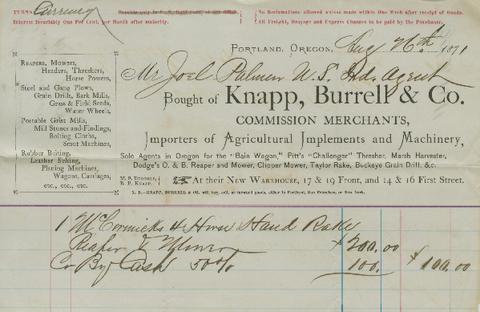 TERMS Currency
Interest Invariably One Per Cent. per Month after maturity.
No Reclamations allowed unless made within One Week after receipt of Goods.
All Freight, Drayage and Express Charges to be paid by the Purchaser.
PORTLAND, OREGON, Aug 26th 1871
Mr Joel Palmer U.S. Ind. Agent
Bought of Knapp, Burrell & Co.
COMMISSION MERCHANTS,
Importers of Agricultural Implements and Machinery,
Sole Agents in Oregon for the "Bain Wagon," Pitt's "Challenger" Thresher, Marsh Harvester,
Dodge's O. & B. Reaper and Mower, Clipper Mower, Taylor Rake, Buckeye Grain Drill, &c.
At their New Warehouse, 17 & 19 Front, and 14 & 16 First Street.
REAPERS, MOWERS,
Headers, Threshers,
Horse Powers,
Steel and Gang Plows,
Grain Drills, Bark Mills,
Grass & Field Seeds,
Water Wheels,
Portable Grist Mills,
Mill Stones and Findings,
Bolting Cloths,
Smut Machines,
Rubber Belting,
Leather Belting,
Planing Machines,
Wagons, Carriages,
etc., etc., etc.
1 McCormicks 4 Horse Hand Rake
Reaper & Mower $200.00
Cr By Cash 50% 100. $100.00